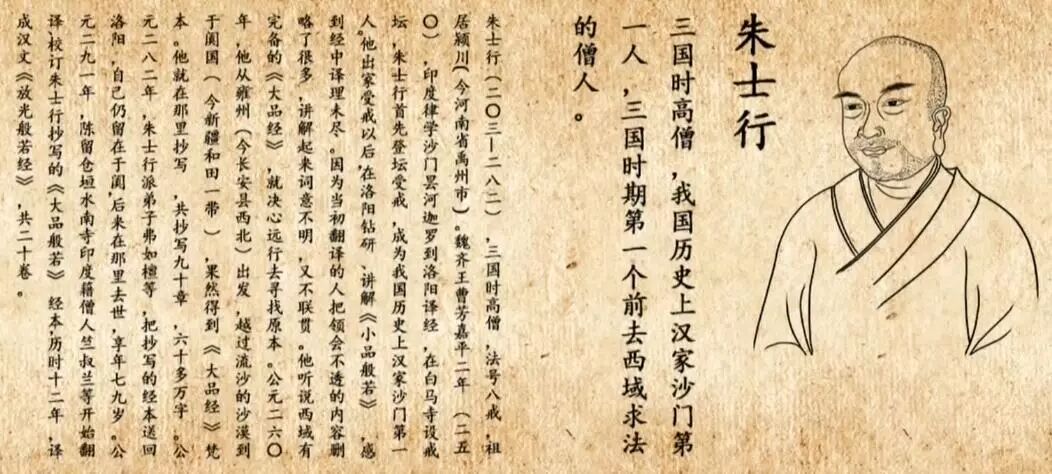 朱士行
三国时高僧,我国历史上汉家沙门第
一人,三国时期第一个前去西域求法
的僧人。
朱士行(二〇三—二八二),三国时高僧,法号八戒,祖
居颍川(今河南省禹州市)。魏齐王曹芳嘉平二年(二五
〇),印度律学沙门昙河迦罗到洛阳译经,在白马寺设戒
坛,朱士行首先登坛受戒,成为我国历史上汉家沙门第一
人。他出家受戒以后,在洛阳钻研、讲解《小品般若》,感
到经中译理未尽。因为当初翻译的人把领会不透的内容删
略了很多,讲解起来词意不明,又不联贯。他听说西域有
完备的《大品经》,就决心远行去寻找原本。公元二六〇
年,他从雍州(今长安县西北)出发,越过流沙的沙漠到
于阗国(今新疆和田一带),果然得到《大品经》梵
本。他就在那里抄写,共抄写九十章,六十多万字。公
元二八二年,朱士行派弟子弗如檀等,把抄写的经本送回
洛阳,自己仍留在于阗,后来在那里去世,享年七九岁。公
元二九一年,陈留仓垣水南寺印度籍僧人竺叔兰等开始翻
译、校订朱士行抄写的《大品般若》经本,历时十二年,译
成汉文《放光般若经》,共二十卷。